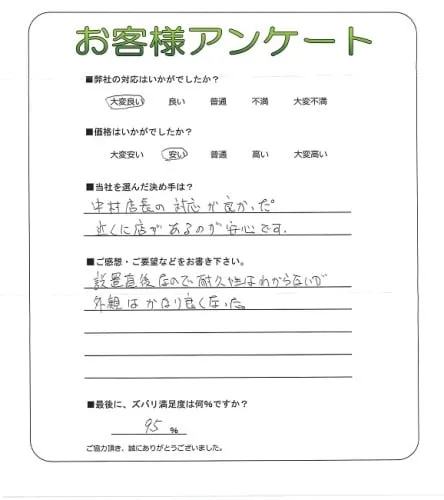 お客様アンケート
■弊社の対応はいかがでしたか？
大変良い 良い 普通 不満 大変不満
■価格はいかがでしたか？
大変安い 安い 普通 高い 大変高い
■当社を選んだ決め手は？
中村店長の対応が良かった。
近くに店があるのが安心です。
■ご感想・ご要望などをお書き下さい。
設置直後なので耐久性はわからないが
外観はかなり良くなった。
■最後に、ズバリ満足度は何％ですか？
95 %
ご協力頂き、誠にありがとうございました。